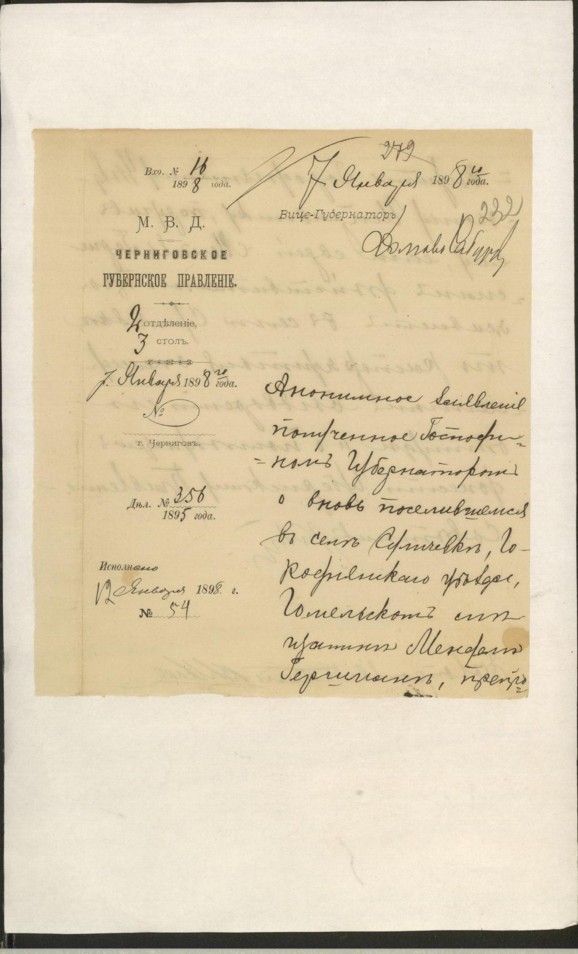 279
Вхо. № 16
1898 года.
7 Января 1898 го года.
232
Вице-Губернаторъ
М. В. Д.
ЧЕРНИГОВСКОЕ
ГУБЕРНСКОЕ ПРАВЛЕНІЕ.
2 отдѣленіе,
3 столъ.
7 Января 1898 го года.
№
г. Черниговъ.
Дѣл. № 356
1895 года.
Исполнено
12 Января 1898 г.
№ 54
Анонимное заявленіе
полученное Господи-
=номъ Губернаторомъ
о вновь поселившемся
въ селѣ, Го-
роднянскаго уѣзда,
Гомельскомъ мѣ
щанинѣ Менделѣ
, препро=